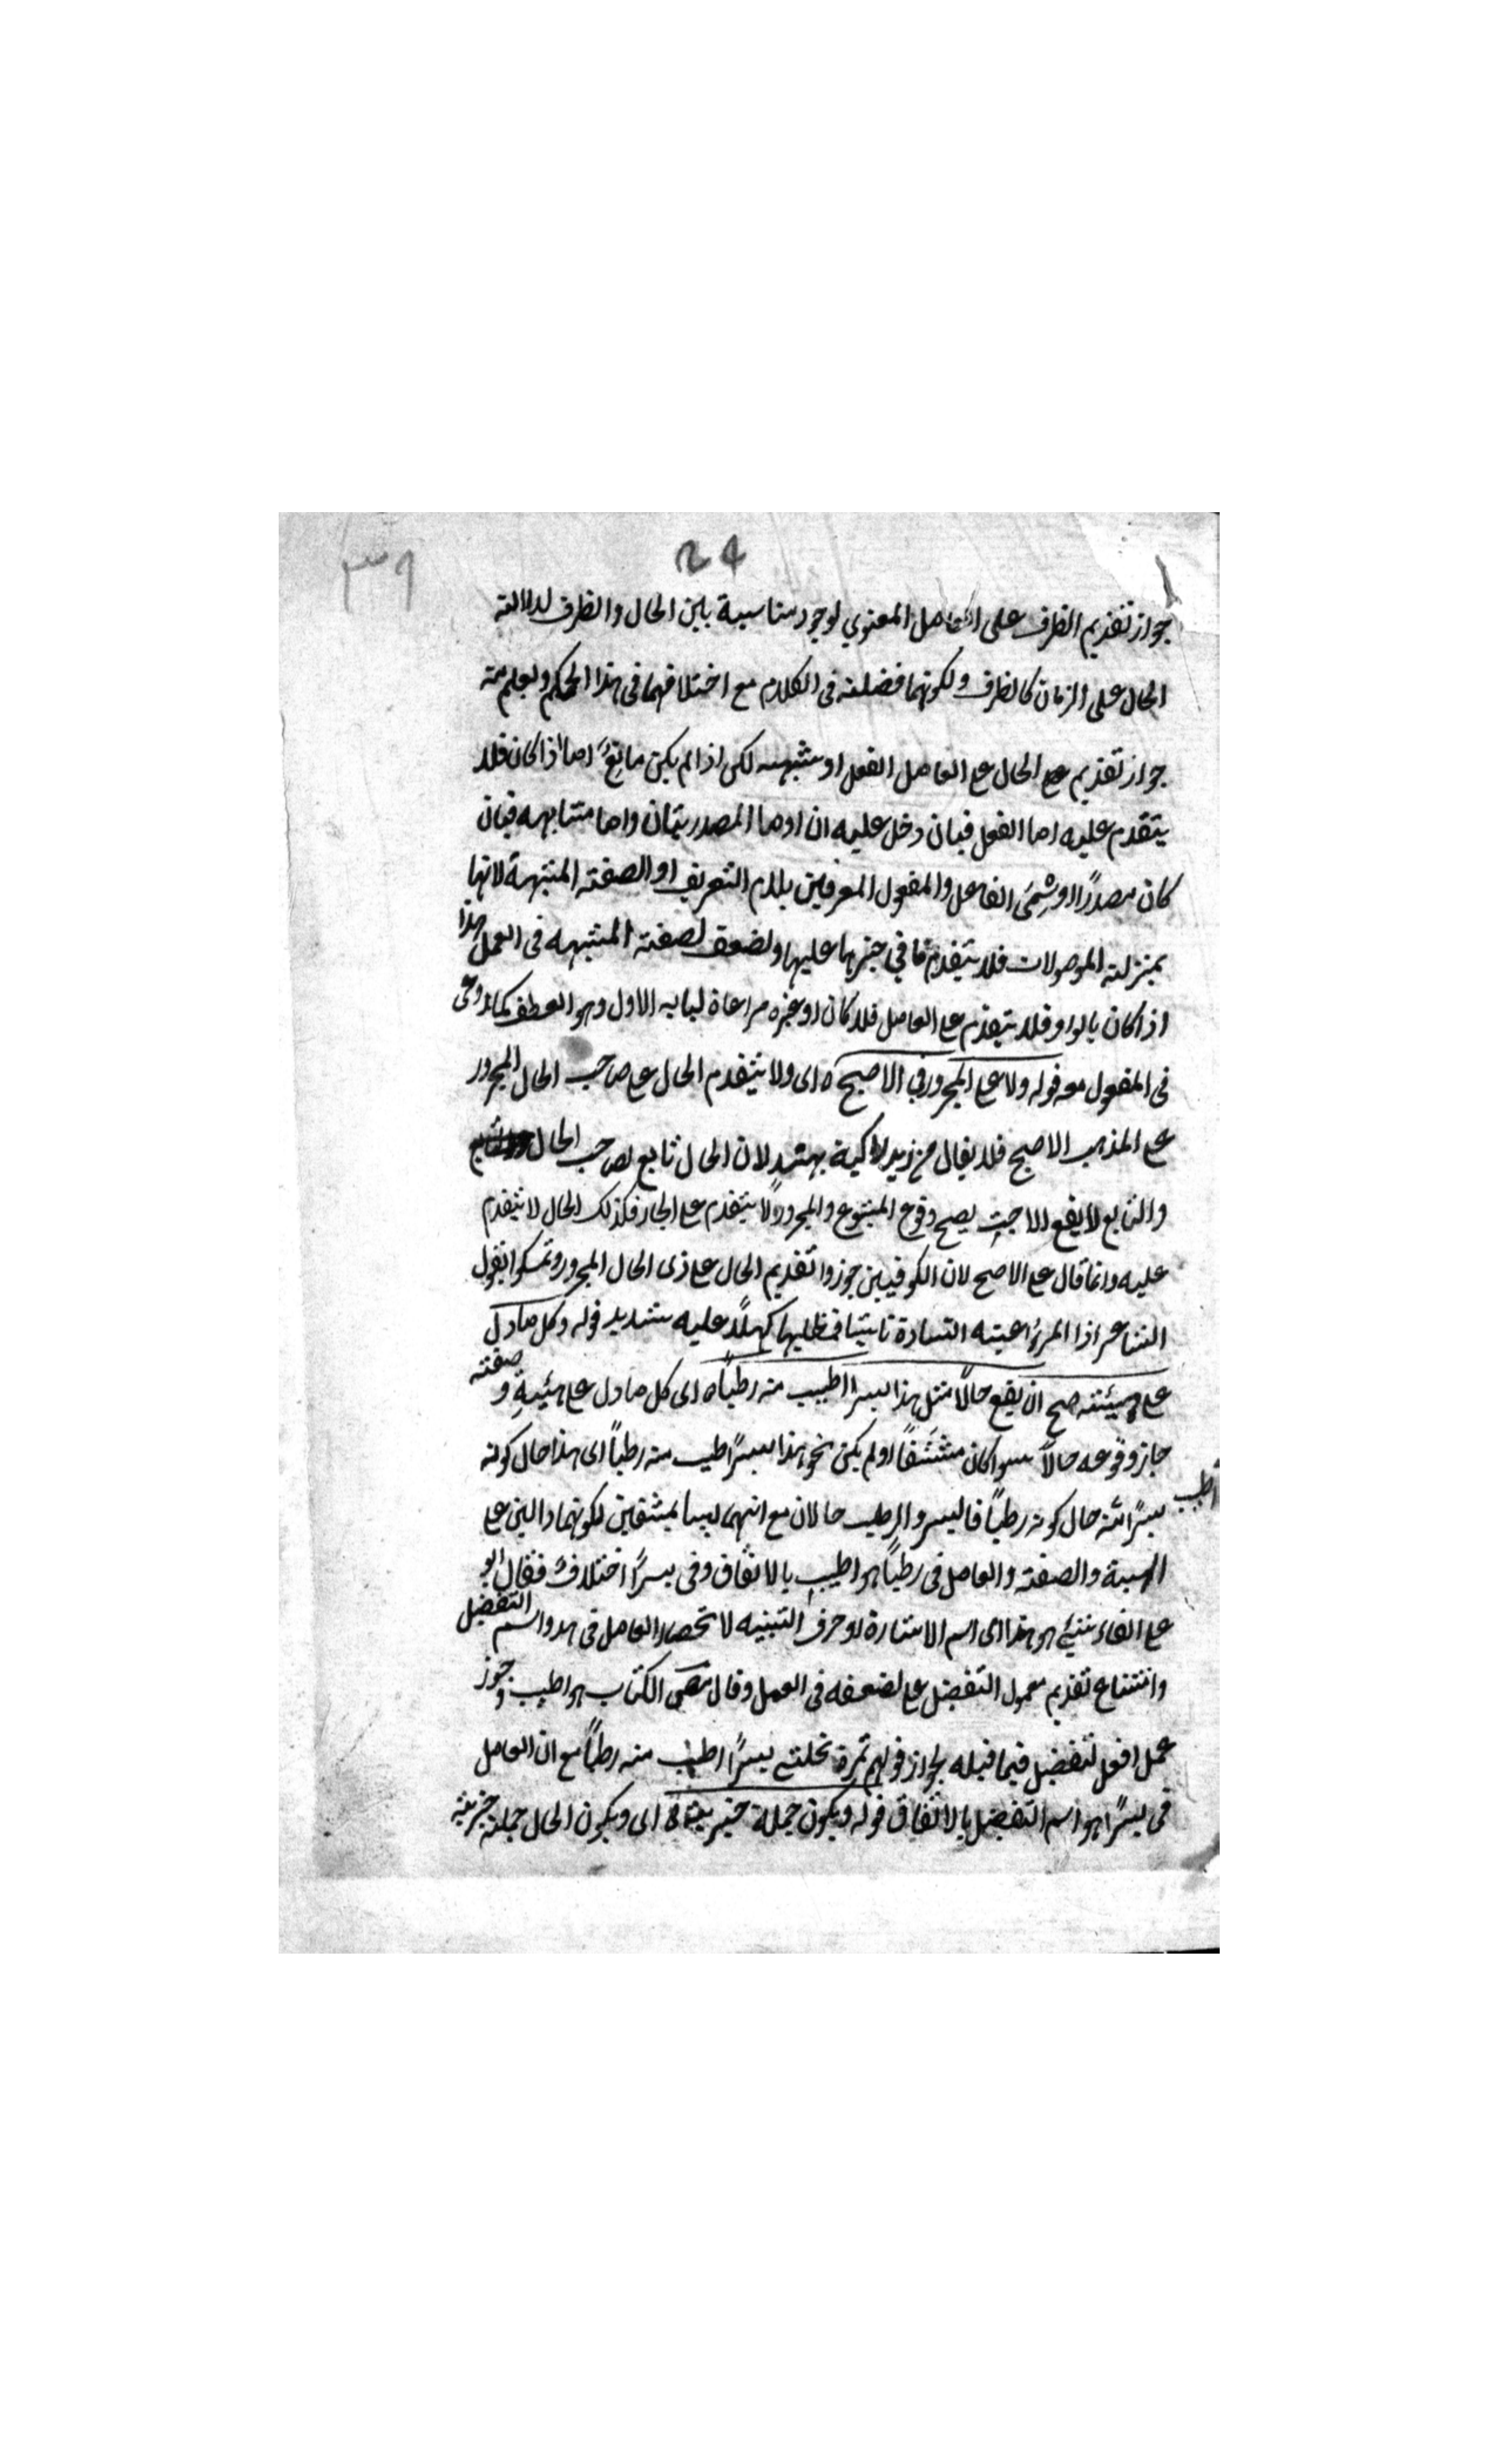 ٣٩
24
جواز تقديم الظرف على العامل المعنوي لوجود مناسبة بين الحال والظرف لدلالته
الحال على الزمان كالظرف ولكونهما فضلته فى الكلام مع اختلافهما فى هذا الحكم ويعلم منه
جواز تقديم الحال على العامل الفعل او شبهه لكن اذا لم يكن مانع اما اذا كان فلا
يتقدم عليه اما الفعل فبان دخل عليه ان او ما المصدريتان واما مشابهه فبان
كان مصدرًا او اسمى الفاعل والمفعول المعرفين بلام التعريف او الصفته المشبهة لانها
بمنزلته الموصولات فلا يتقدم ما في حيزها عليها ولضعف لصفته المشبهه فى العمل هذا
اذا كان بالواو فلا يتقدم على العامل فلا كان او غيره مراعاة لبابه الاول وهو العطف كما
فى المفعول معه قوله ولا على المجرور فى الاصح ه اى ولا يتقدم الحال على صاحب الحال المجرور
على المذهب الاصح فلا يقال راكبة بهند لان الحال تابع لصاحب الحال
والتابع لا يقع الا حيث يصح وقوع المتبوع والمجرور لا يتقدم على الجار فكذلك الحال لا يتقدم
عليه وانما قال على الاصح لان الكوفيين جوزوا تقديم الحال على ذى الحال المجرور وتمسكوا بقول
الشاعر اذا المرء اعيته السادة ناشيا فمطلبها كهلًا عليه شديد قوله وكل ما دل
على هيئته صح ان يقع حالًا مثل هذا بسرا اطيب منه رطبًا ه اى كل ما دل على هيئية و صفته
جاز وقوعه حالًا سوا كان مشتقًا او لم يكن نحو هذا بسرًا اطيب منه رطبًا اى هذا حال كونه
بسرًا اطيب منه حال كونه رطبًا فالبسر والرطب حالان مع انهما ليسا بمشتقين لكونهما دالين على
الهيئة والصفته والعامل فى رطبًا هو اطيب بالاتفاق وفى بسرًا اختلاف فقال ابو
على الفا هو هذا اى اسم الاشارة او حرف التنبيه لانحصار العامل فى هذا واسم التفضيل
وامتناع تقديم معمول التفضيل على لضعفه فى العمل وقال الكتاب هو اطيب وجوز
عمل افعل لتفضيل فيما قبله لجواز قولهم ثمرة نخلتى بسرًا اطيب منه رطبًا مع ان العامل
فى بسرًا هو اسم التفضيل بالاتفاق قوله ويكون جملة خبرية ه اى ويكون الحال جملته خبريته